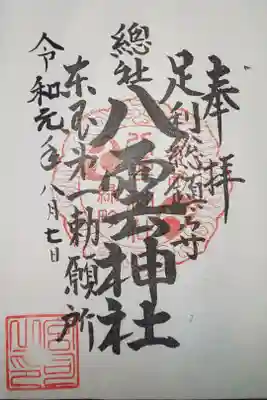 奉拝
足利総鎮守
總社
八雲神社
東国第一勅願所
令和元年八月七日